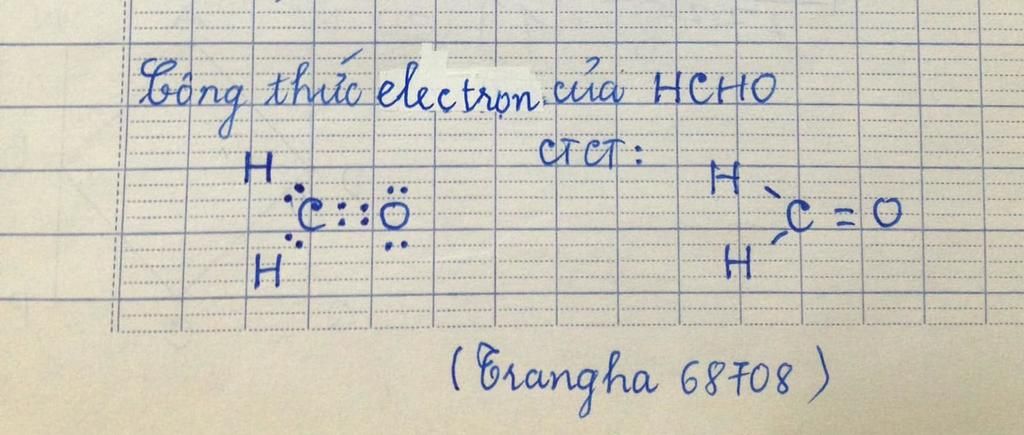 Công thức electron của HCHO
CTCT:
H H
C::Ö C = O
H H
(Trangha 68708)